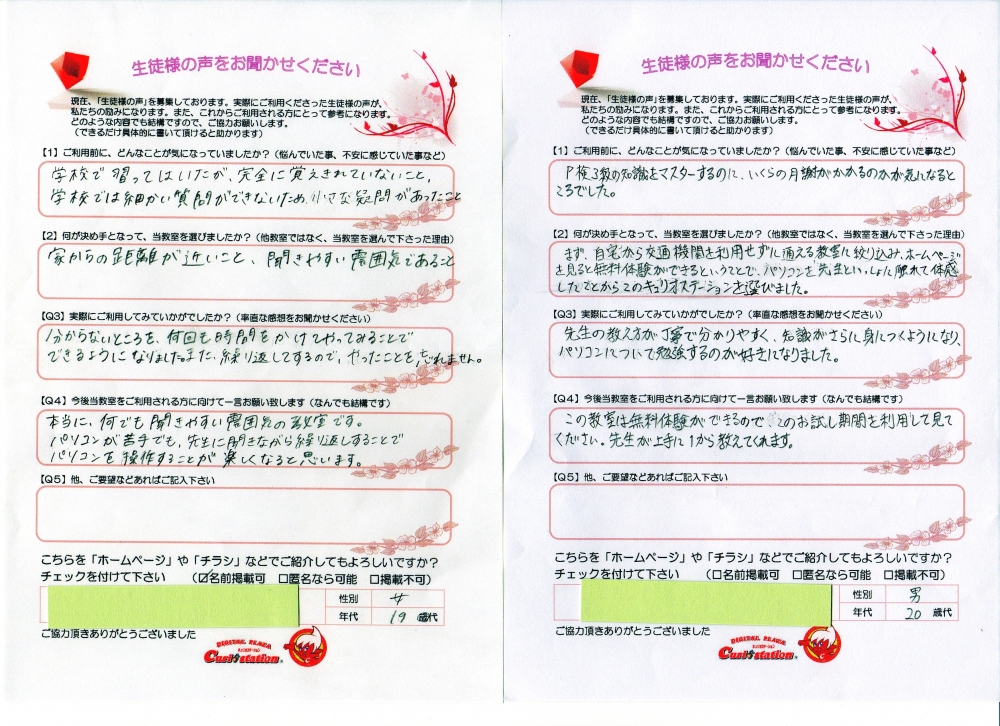 生徒様の声をお聞かせください
現在、「生徒様の声」を募集しております。実際にご利用くださった生徒様の声が、
私たちの励みになります。また、これからご利用される方にとって参考になります。
どのような内容でも結構ですので、ご協力お願いします。
(できるだけ具体的に書いて頂けると助かります)
【1】ご利用前に、どんなことが気になっていましたか?(悩んでいた事、不安に感じていた事など)
学校で習ってはいたが、完全に覚えきれていないこと、
学校では細かい質問ができないため、小さな疑問があったこと
【2】何が決め手となって、当教室を選びましたか?(他教室ではなく、当教室を選んで下さった理由)
家からの距離が近いこと、聞きやすい雰囲気であること
【Q3】実際にご利用してみていかがでしたか?(率直な感想をお聞かせください)
分からないところを、何回も時間をかけてやってみることで
できるようになりました。また、繰り返しするので、やったことを忘れません。
【Q4】今後当教室をご利用される方に向けて一言お願い致します(なんでも結構です)
本当に、何でも聞きやすい雰囲気の教室です。
パソコンが苦手でも、先生に聞きながら繰り返しすることで
パソコンを操作することが楽しくなると思います。
【Q5】他、ご要望などあればご記入下さい
こちらを「ホームページ」や「チラシ」などでご紹介してもよろしいですか?
チェックを付けて下さい (☑名前掲載可 □匿名なら可能 □掲載不可)
性別 女
年代 19 歳代
ご協力頂きありがとうございました
DIGITAL PLAZA
Curio station
生徒様の声をお聞かせください
現在、「生徒様の声」を募集しております。実際にご利用くださった生徒様の声が、
私たちの励みになります。また、これからご利用される方にとって参考になります。
どのような内容でも結構ですので、ご協力お願いします。
(できるだけ具体的に書いて頂けると助かります)
【1】ご利用前に、どんなことが気になっていましたか?(悩んでいた事、不安に感じていた事など)
P検3級の知識をマスターするのに、いくらの月謝がかかるのかが気になると
ころでした。
【2】何が決め手となって、当教室を選びましたか?(他教室ではなく、当教室を選んで下さった理由)
まず、自宅から交通機関を利用せずに通える教室に絞り込み、ホームページ
を見ると無料体験ができるということで、パソコンを先生といっしょに触れて体感
したことからこのキュリオステーションを選びました。
【Q3】実際にご利用してみていかがでしたか?(率直な感想をお聞かせください)
先生の教え方が丁寧で分かりやすく、知識がさらに身につくようになり、
パソコンについて勉強するのが好きになりました。
【Q4】今後当教室をご利用される方に向けて一言お願い致します(なんでも結構です)
この教室は無料体験ができるのでこのお試し期間を利用して見て
ください。先生が上手に1から教えてくれます。
【Q5】他、ご要望などあればご記入下さい
こちらを「ホームページ」や「チラシ」などでご紹介してもよろしいですか?
チェックを付けて下さい (□名前掲載可 □匿名なら可能 □掲載不可)
性別 男
年代 20 歳代
ご協力頂きありがとうございました
DIGITAL PLAZA
Curio station